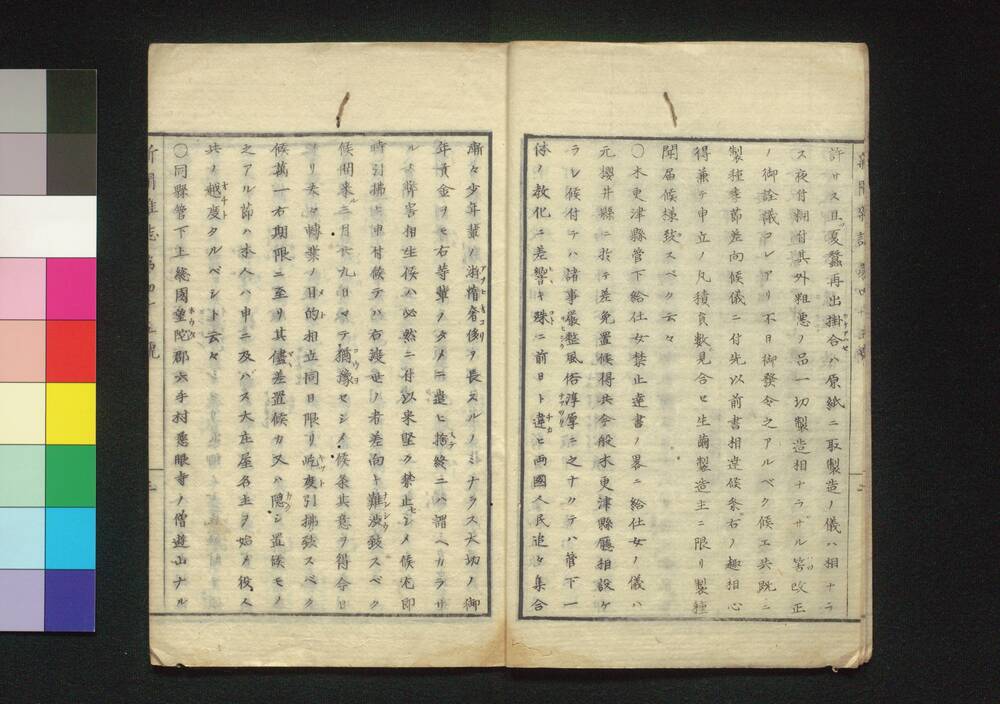 許サス且夏蠶再出掛合ハ原紙ニ取製造ノ儀ハ相ナラ
ス夜付糊付其外粗悪ノ品一切製造相ナラサル筈改正
ノ御詮議コレアリ不日御發令之アルベク候エ共既ニ
製種季節差向候儀ニ付先以前書相達候条右ノ趣相心
得兼テ申立ノ凡積員數見合セ生繭製造主ニ限リ製種
聞届候様致スベク云々
〇木更津縣管下給仕女禁止達書ノ畧ニ給仕女ノ儀ハ
元櫻井縣ニ於テ差免置候得共今般木更津縣廳相設ケ
ラレ候付テハ諸事嚴整風俗淳厚ニ之ナクテハ管下一
体ノ教化ニ差響キ殊ニ前日ト違ヒ両國人民追々集合
漸々少年輩ノ游惰奢侈ヲ長スルノミナラス大切ノ御
年貢金ヲモ右等輩ノタメニ遣ヒ捨終ニハ謂ヘカラサ
ルノ弊害相生候ハ必然ニ付以来堅ク禁止セシメ候尤即
時引拂ヒ申付候テハ右渡世ノ者差向ト難渋致スベク
候間来ル二月廿九日マテ猶豫セシメ候条其意ヲ得今日
ヨリ夫々轉業ノ目的相立同日限リ屹度引拂致スベク
候萬一右期限ニ至リ其儘差置候カ又ハ隠シ置候モノ
之アル節ハ本人ハ申ニ及バス大庄屋名主ヲ始メ役人
共ノ越度タルベシト云々
〇同縣管下上總國望陀郡六手村悪眼寺ノ僧遊山ナル